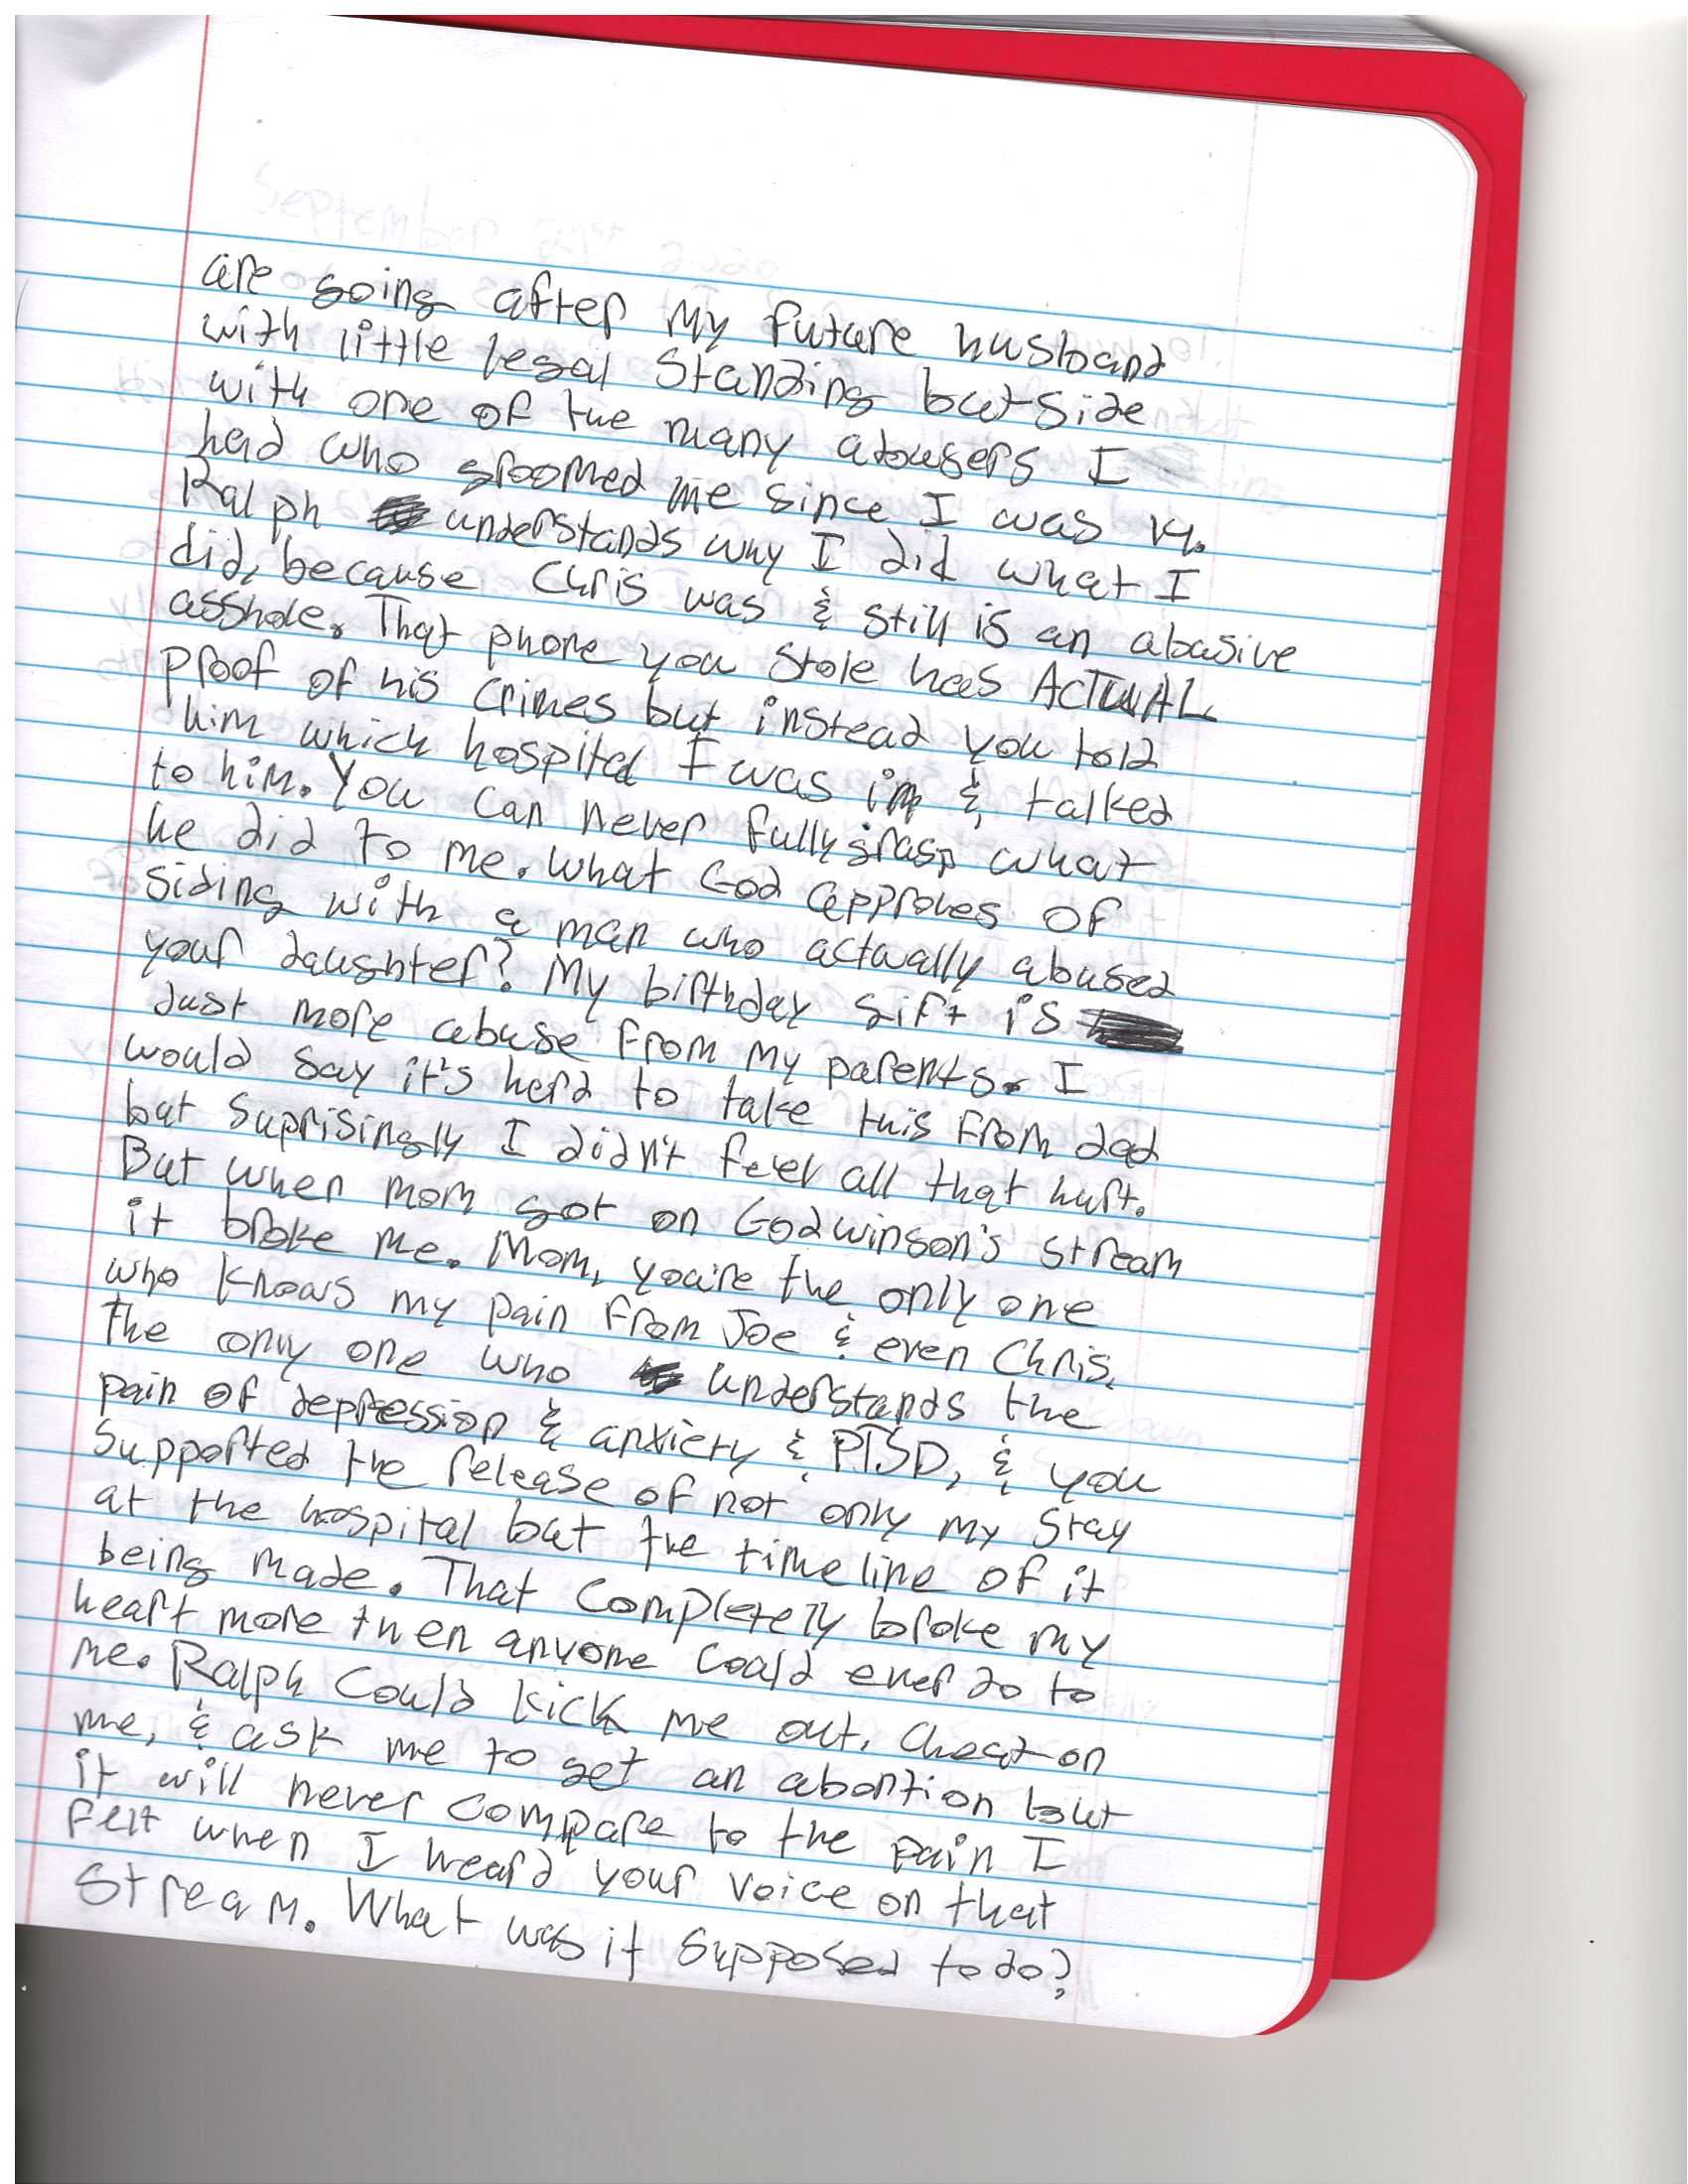 September 21st 2020
are going after my future husband
with little legal standing but side
with one of the many abusers I
had who groomed me since I was 14.
Ralph understands why I did what I
did, because Chris was & still is an abusive
asshole. That phone you stole has ACTUAL
proof of his crimes but instead you told
him which hospital I was in & talked
to him. You can never fully grasp what
he did to me. What God approves of
siding with a man who actually abused
your daughter? My birthday gift is
Just more abuse from my parents. I
would say it's hard to take this from dad
but suprisingly I didn't feel all that hurt.
But when mom got on Godwinson's stream
it broke me. Mom, you're the only one
who knows my pain from Joe & even Chris,
the only one who understands the
pain of depression & anxiety & PTSD, & you
supported the release of not only my stay
at the hospital but the timeline of it
being made. That completely broke my
heart more then anyone could ever do to
me. Ralph could kick me out, cheat on
me, & ask me to get an abortion but
it will never compare to the pain I
felt when I heard your voice on that
stream. What was it supposed to do?